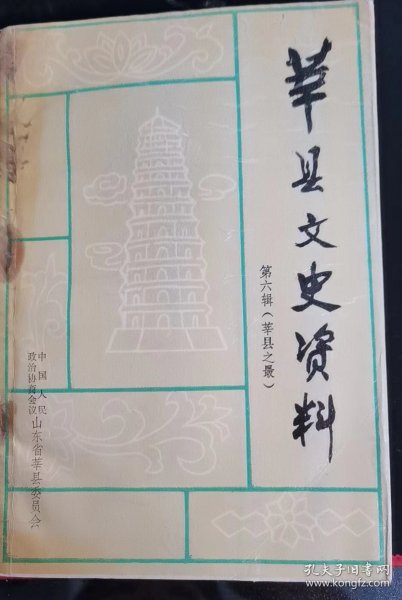 莘县文史资料
第六辑（莘县之最）
中国人民
政治协商会议
山东省莘县委员会
孔夫子旧书网
www.kongfz.com